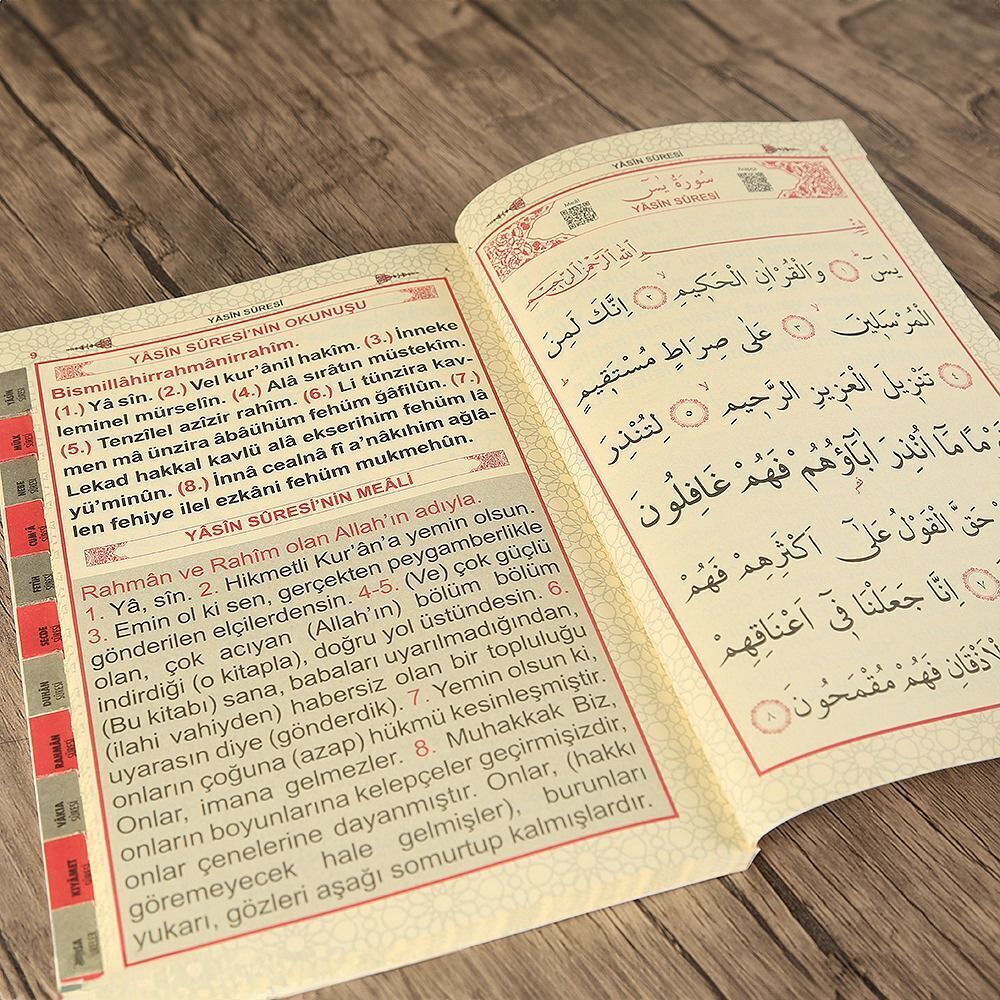 YÂSİN SÛRESİ
9
YÂSİN SÛRESİ'NİN OKUNUŞU
Bismillâhirrahmânirrahîm.
(1.) Yâ sîn. (2.) Vel kur'ânil hakîm. (3.) İnneke
leminel mürselîn. (4.) Alâ sırâtın müstekîm.
(5.) Tenzîlel azîzir rahîm. (6.) Li tünzira kav-
men mâ ünzira âbâühüm fehüm ğâfilûn. (7.)
Lekad hakkal kavlü alâ ekserihim fehüm lâ
yü'minûn. (8.) İnnâ cealnâ fî a'nâkıhim ağlâ-
len fehiye ilel ezkâni fehüm mukmehûn.
YÂSİN SÛRESİ'NİN MEÂLİ
Rahmân ve Rahîm olan Allah'ın adıyla.
1. Yâ, sîn. 2. Hikmetli Kur'ân'a yemin olsun.
3. Emin ol ki sen, gerçekten peygamberlikle
gönderilen elçilerdensin. 4-5. (Ve) çok güçlü
olan, çok acıyan (Allah'ın) bölüm bölüm
indirdiği (o kitapla), doğru yol üstündesin. 6.
(Bu kitabı) sana, babaları uyarılmadığından,
(ilahi vahiyden) habersiz olan bir topluluğu
uyarasın diye (gönderdik). 7. Yemin olsun ki,
onların çoğuna (azap) hükmü kesinleşmiştir.
Onlar, imana gelmezler. 8. Muhakkak Biz,
onların boyunlarına kelepçeler geçirmişizdir,
onlar çenelerine dayanmıştır. Onlar, (hakkı
göremeyecek hale gelmişler), burunları
yukarı, gözleri aşağı somurtup kalmışlardır.
YÂSİN SÛRESİ
MÜLK SÛRESİ
NEBE SÛRESİ
CUM'A SÛRESİ
FETİH SÛRESİ
SECDE SÛRESİ
DUHÂN SÛRESİ
RAHMÂN SÛRESİ
VÂKIA SÛRESİ
KIYÂMET SÛRESİ
YÂSİN SÛRESİ
Meâli
سُورَةُ يٰسٓ
YÂSİN SÛRESİ
Arapça
بِسْمِ اللّٰهِ الرَّحْمٰنِ الرَّحِيمِ
يٰسٓ ۝١ وَالْقُرْاٰنِ الْحَكِيمِ ۝٢ اِنَّكَ لَمِنَ
الْمُرْسَلِينَ ۝٣ عَلٰى صِرَاطٍ مُسْتَقِيمٍ
۝٤ تَنْزِيلَ الْعَزِيزِ الرَّحِيمِ ۝٥ لِتُنْذِرَ
مَا اُنْذِرَ اٰبَاؤُهُمْ فَهُمْ غَافِلُونَ
حَقَّ الْقَوْلُ عَلٰٓى اَكْثَرِهِمْ فَهُمْ
۝٧ اِنَّا جَعَلْنَا فِٓي اَعْنَاقِهِمْ
الْاَذْقَانِ فَهُمْ مُقْمَحُونَ ۝٨